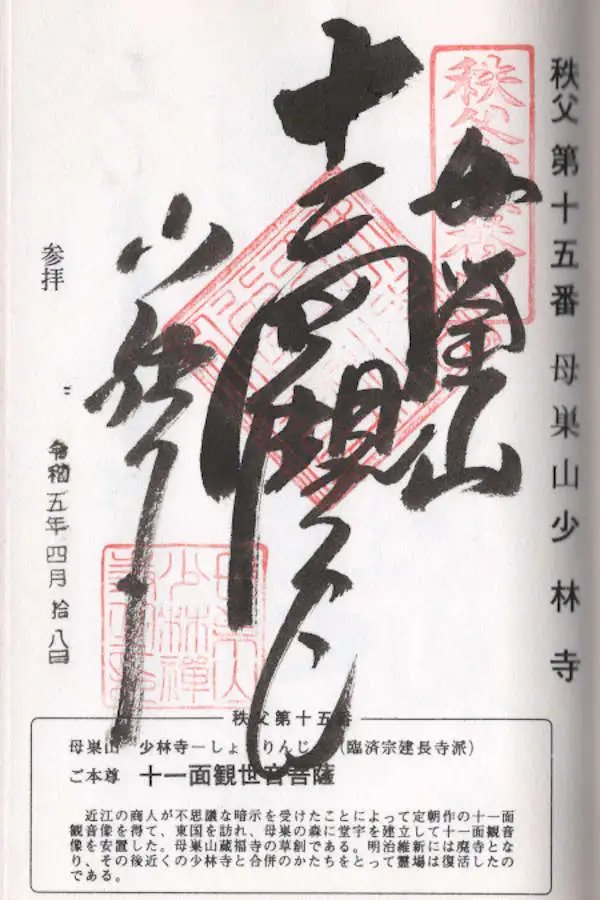 秩父 第十五番 母巣山少林寺
母巣山
十一面
少林寺
参拝
令和五年四月拾八日
秩父第十五番
母巣山 少林寺ーしょうりんじー(臨済宗建長寺派)
ご本尊 十一面観世音菩薩
近江の商人が不思議な暗示を受けたことによって定朝作の十一面
観音像を得て、東国を訪れ、母巣の森に堂宇を建立して十一面観音
像を安置した。母巣山蔵福寺の草創である。明治維新には廃寺とな
り、その後近くの少林寺と合併のかたちをとって霊場は復活したの
である。